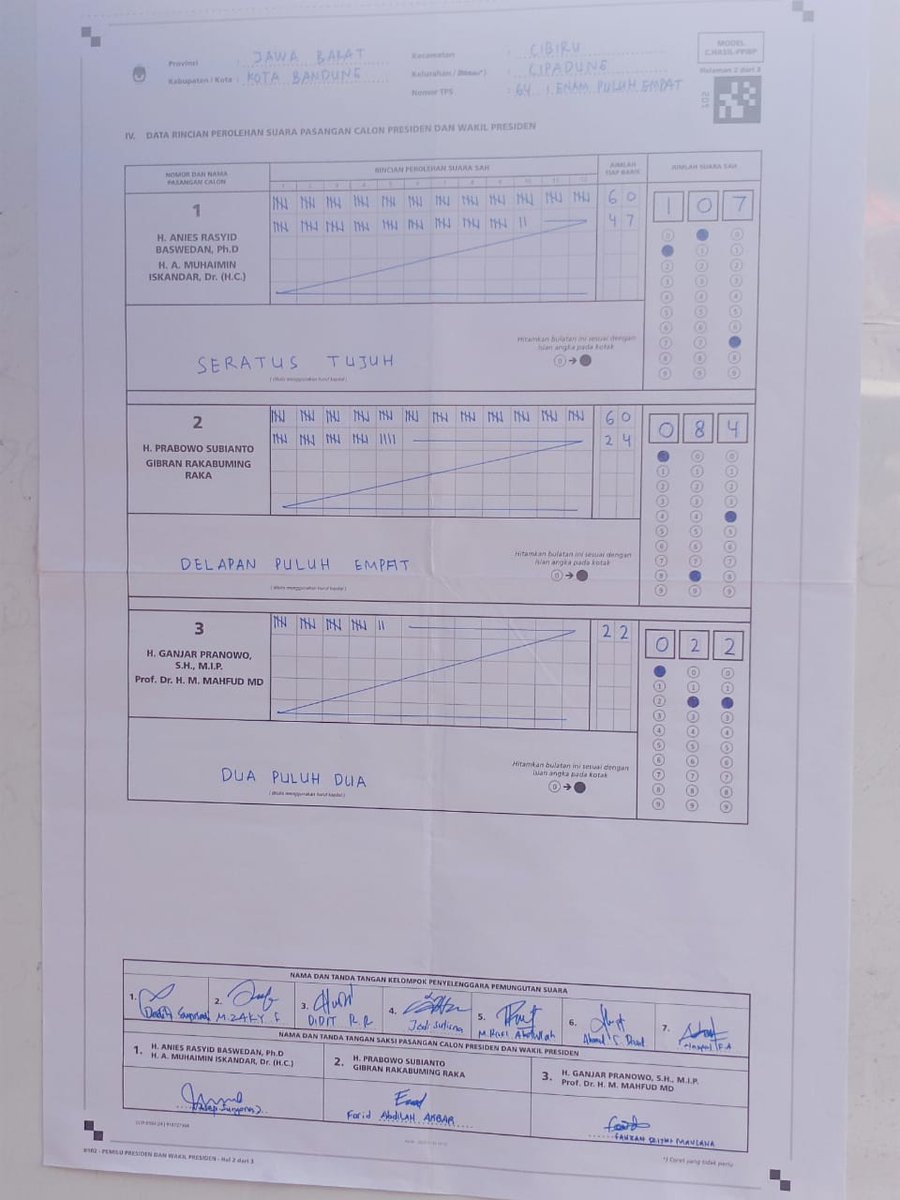 MODEL
C.HASIL-PPWP
Halaman 2 dari 3
Provinsi : JAWA BARAT
Kabupaten / Kota : KOTA BANDUNG
Kecamatan : CIBIRU
Kelurahan / Desa*) : CIPADUNG
Nomor TPS : 64 ( ENAM PULUH EMPAT
IV. DATA RINCIAN PEROLEHAN SUARA PASANGAN CALON PRESIDEN DAN WAKIL PRESIDEN
NOMOR DAN NAMA PASANGAN CALON
RINCIAN PEROLEHAN SUARA SAH
JUMLAH TIAP BARIS
JUMLAH SUARA SAH
1 2 3 4 5 6 7 8 9 10 11 12
1
H. ANIES RASYID
BASWEDAN, Ph.D
H. A. MUHAIMIN
ISKANDAR, Dr. (H.C.)
60
47
1 0 7
SERATUS TUJUH
( ditulis menggunakan huruf kapital )
Hitamkan bulatan ini sesuai dengan
isian angka pada kotak
2
H. PRABOWO SUBIANTO
GIBRAN RAKABUMING
RAKA
60
24
0 8 4
DELAPAN PULUH EMPAT
( ditulis menggunakan huruf kapital )
Hitamkan bulatan ini sesuai dengan
isian angka pada kotak
3
H. GANJAR PRANOWO,
S.H., M.I.P.
Prof. Dr. H. M. MAHFUD MD
22
0 2 2
DUA PULUH DUA
( ditulis menggunakan huruf kapital )
Hitamkan bulatan ini sesuai dengan
isian angka pada kotak
NAMA DAN TANDA TANGAN KELOMPOK PENYELENGGARA PEMUNGUTAN SUARA
1.
2. M. ZAKY. F
3. DIDIT R.R
4. Jedi Sutisna
5.
6.
7.
NAMA DAN TANDA TANGAN SAKSI PASANGAN CALON PRESIDEN DAN WAKIL PRESIDEN
1. H. ANIES RASYID BASWEDAN, Ph.D
H. A. MUHAIMIN ISKANDAR, Dr. (H.C.)
2. H. PRABOWO SUBIANTO
GIBRAN RAKABUMING RAKA
Farid Abdilah AKBAR
3. H. GANJAR PRANOWO, S.H., M.I.P.
Prof. Dr. H. M. MAHFUD MD
MAULANA
B102 - PEMILU PRESIDEN DAN WAKIL PRESIDEN - Hal 2 dari 3
*) Coret yang tidak perlu